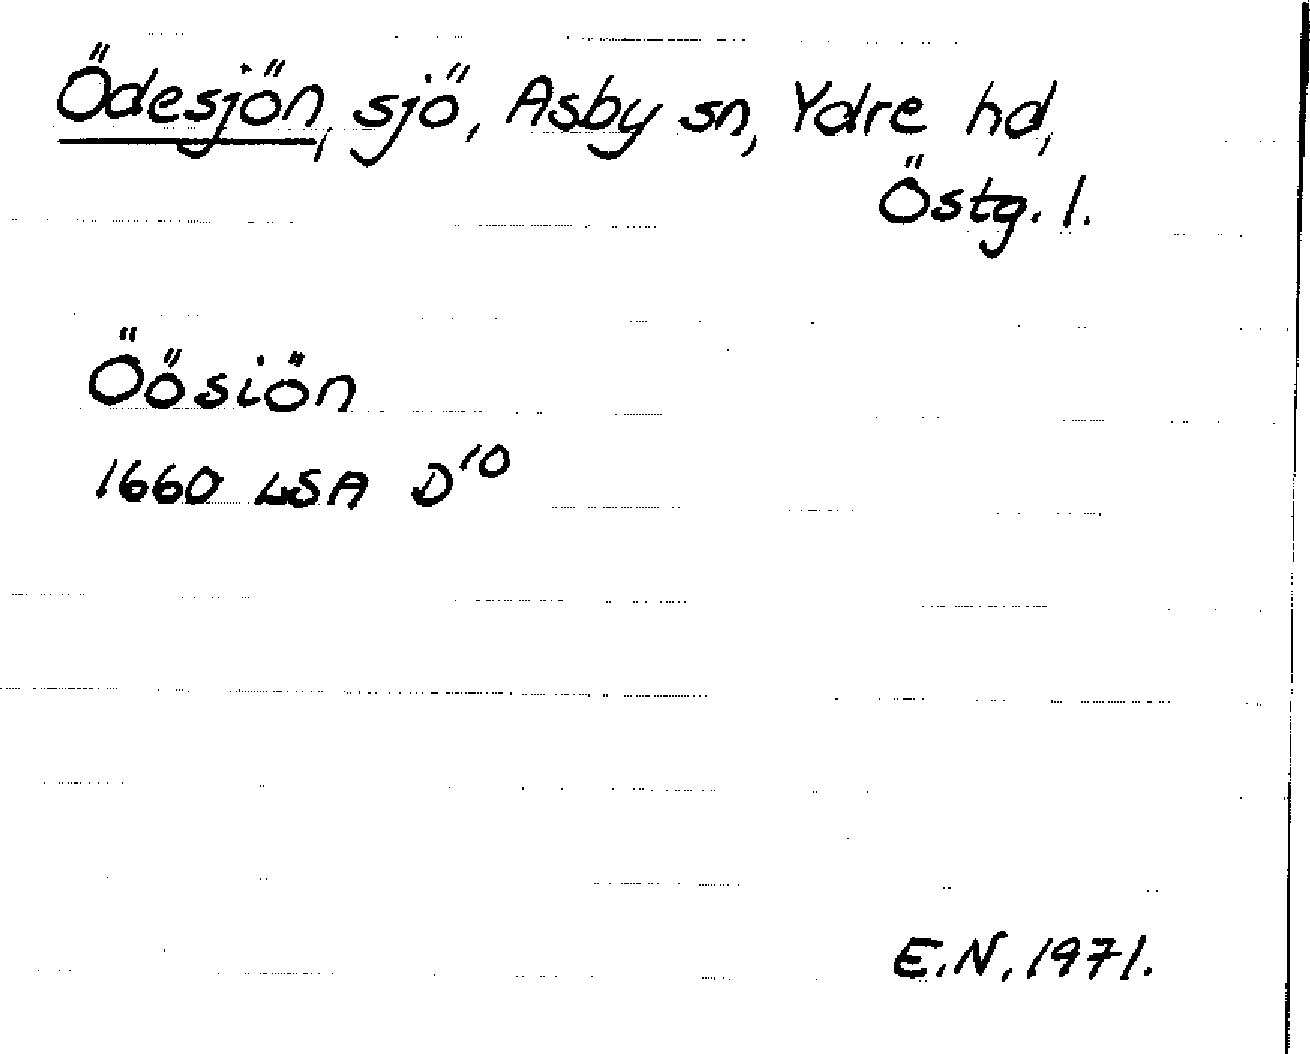 Ödesjön, sjö, Asby sn, Ydre hd,
Östg. l.
Öösiön
1660 LSA D¹⁰
E.N. 1971.